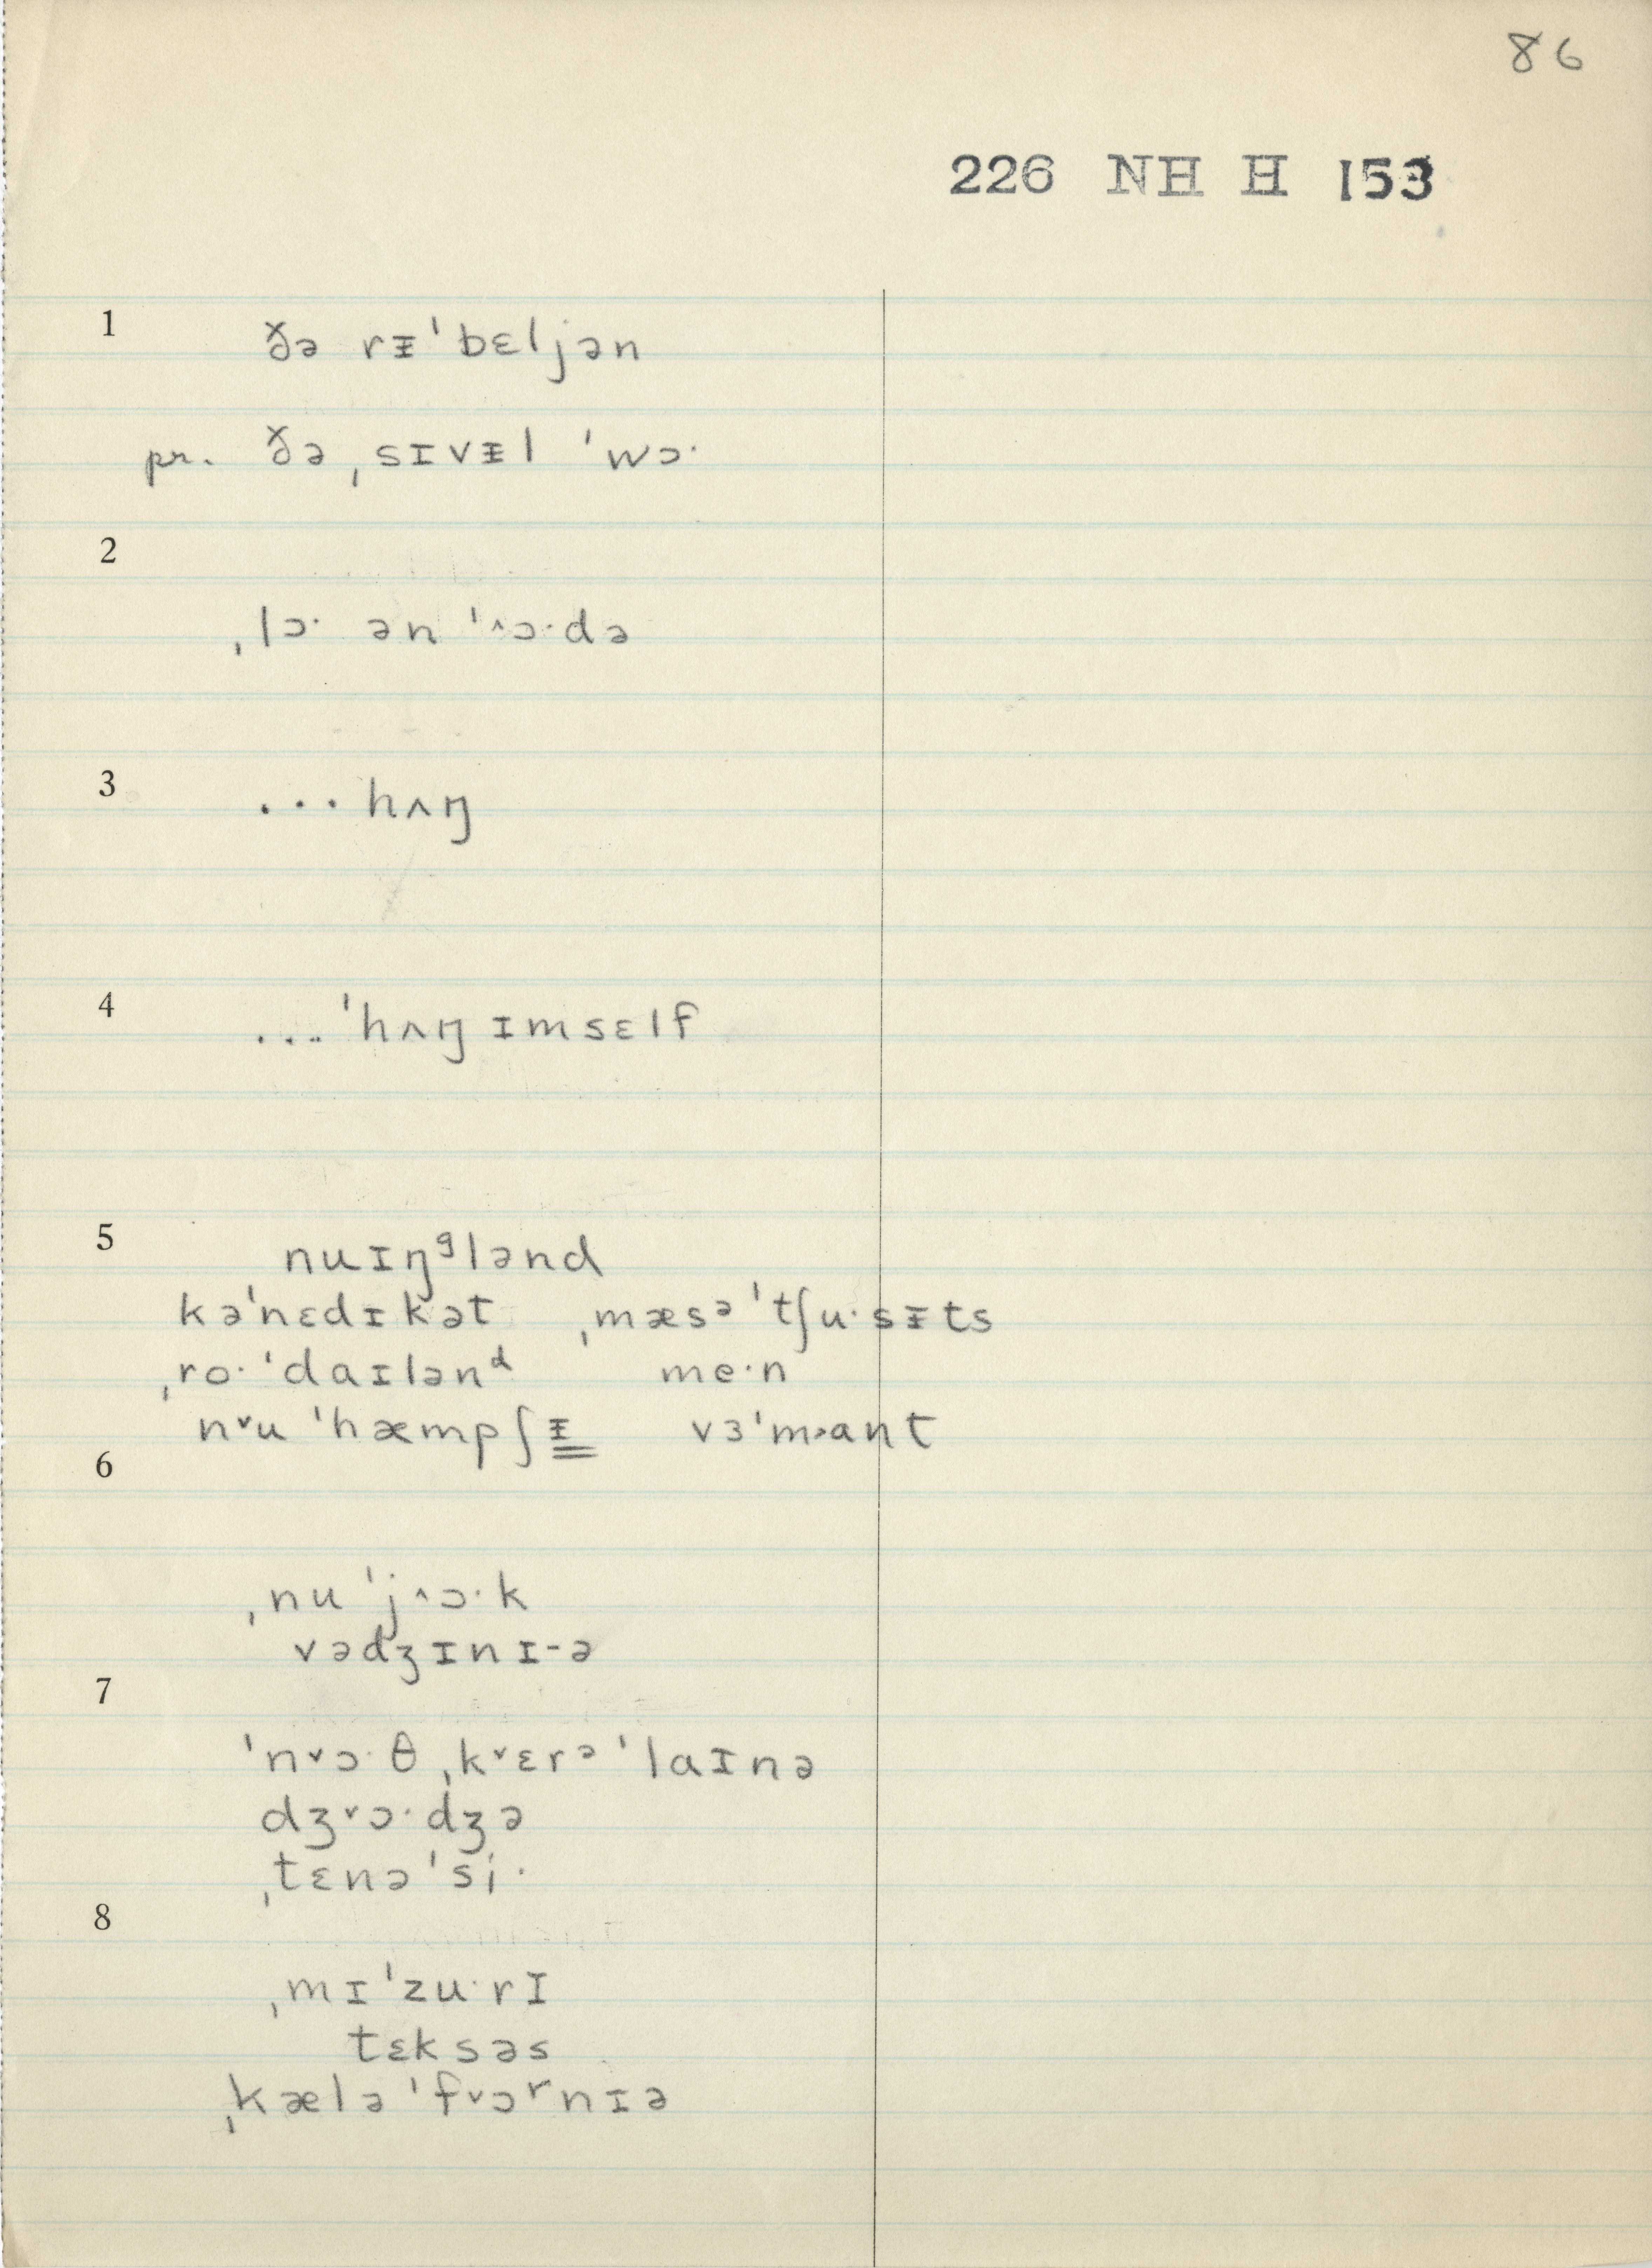 86
226 NH H 153
1 ðə rᵻˈbɛljən
pr. ðə ˌsɪvᵻl ˈwɔ·
2
ˌlɔ· ən ˈ˄ɔ·də
3 ...hʌŋ
4 ...ˈhʌŋ ɪmsɛlf
5 nuɪŋᶢlənd
kəˈnɛdɪkət ˌmæsᵊˈtʃu·sᵻts
ˌro·ˈdaɪlənᵈ me·n
n˅u ˈhæmpʃᵻ vɜˈm˃ant
6
ˌnu ˈj˄ɔ·k
vədʒɪnɪ-ə
7
ˈn˅ɔ·θ ˌk˅ɛrᵊˈlaɪnə
dʒ˅ɔ·dʒə
ˌtɛnəˈsi·
8
ˌmɪˈzu·rɪ
tɛksəs
ˌkæləˈf˅ɔʳnɪə